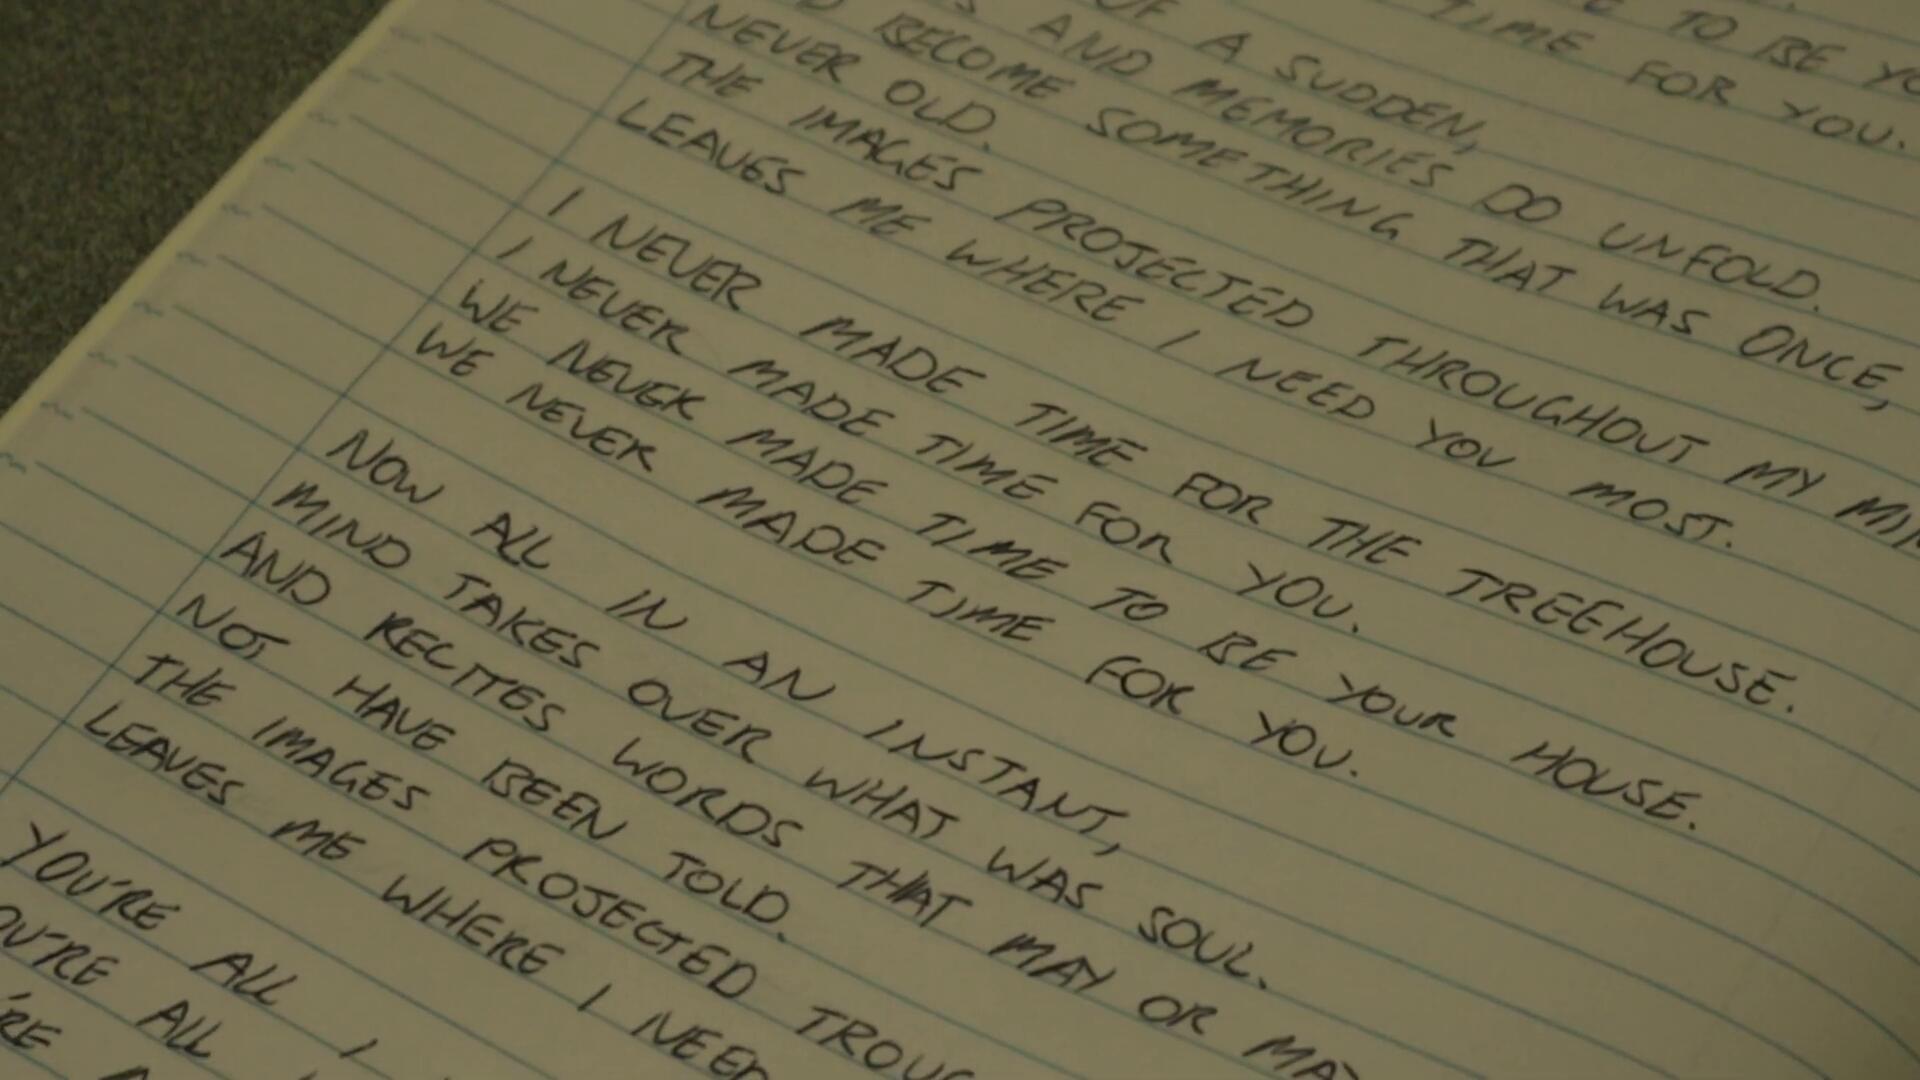 TO BE
TIME FOR YOU.
OF A SUDDEN,
AND MEMORIES DO UNFOLD.
BECOME SOMETHING THAT WAS ONCE,
NEVER OLD.
THE IMAGES PROJECTED THROUGHOUT MY
LEAVES ME WHERE I NEED YOU MOST.
I NEVER MADE TIME FOR THE TREEHOUSE.
I NEVER MADE TIME FOR YOU.
WE NEVER MADE TIME TO BE YOUR HOUSE.
WE NEVER MADE TIME FOR YOU.
NOW ALL IN AN INSTANT,
MIND TAKES OVER WHAT WAS SOUL.
AND RECITES WORDS THAT MAY OR MAY
NOT HAVE BEEN TOLD.
THE IMAGES PROJECTED TROUG
LEAVES ME WHERE I NEED
YOU'RE ALL I
OU'RE ALL
'RE